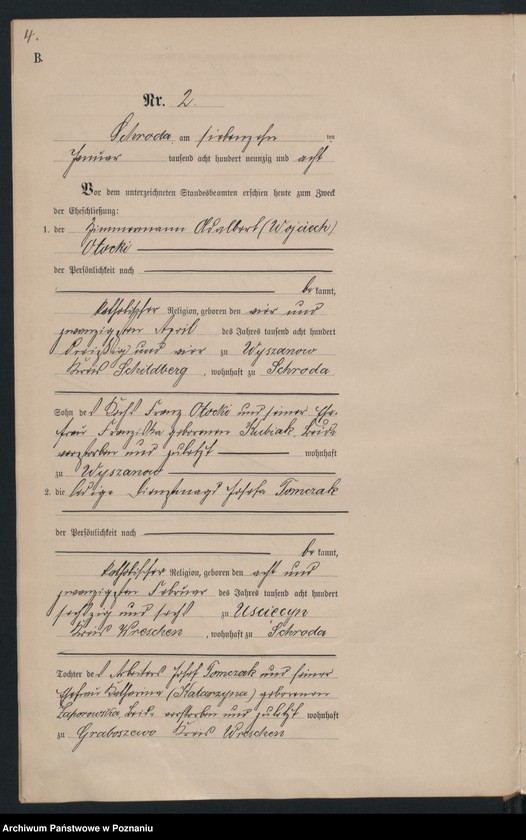 4.
B.
Nr. 2.
Schroda, am siebenzehn ten
Januar tausend acht hundert neunzig und acht
Vor dem unterzeichneten Standesbeamten erschien heute zum Zweck
der Eheschließung:
1. der Zimmermann Adalbert (Wojciech)
Otocki
der Persönlichkeit nach
be kannt,
katholischer Religion, geboren den vier und
zwanzigsten April des Jahres tausend acht hundert
dreißig und vier zu Wyszanow
Kreis Schildberg, wohnhaft zu Schroda
Sohn des Franz Otocki und seiner Ehe-
frau Franziska geborenen Kubiak, beide
verstorben und zuletzt wohnhaft
zu Wyszanow
2. die ledige Dienstmagd Josefa Tomczak
der Persönlichkeit nach
be kannt,
katholischer Religion, geboren den acht und
zwanzigsten Februar des Jahres tausend acht hundert
sechzig und sechs zu Usciecyn
Kreis Wreschen, wohnhaft zu Schroda
Tochter des Arbeiters Josef Tomczak und seiner
Ehefrau Katharina (Katarzyna) geborenen
Zaporowska, beide verstorben und zuletzt wohnhaft
zu Graboszewo Kreis Wreschen
Archiwum Państwowe w Poznaniu